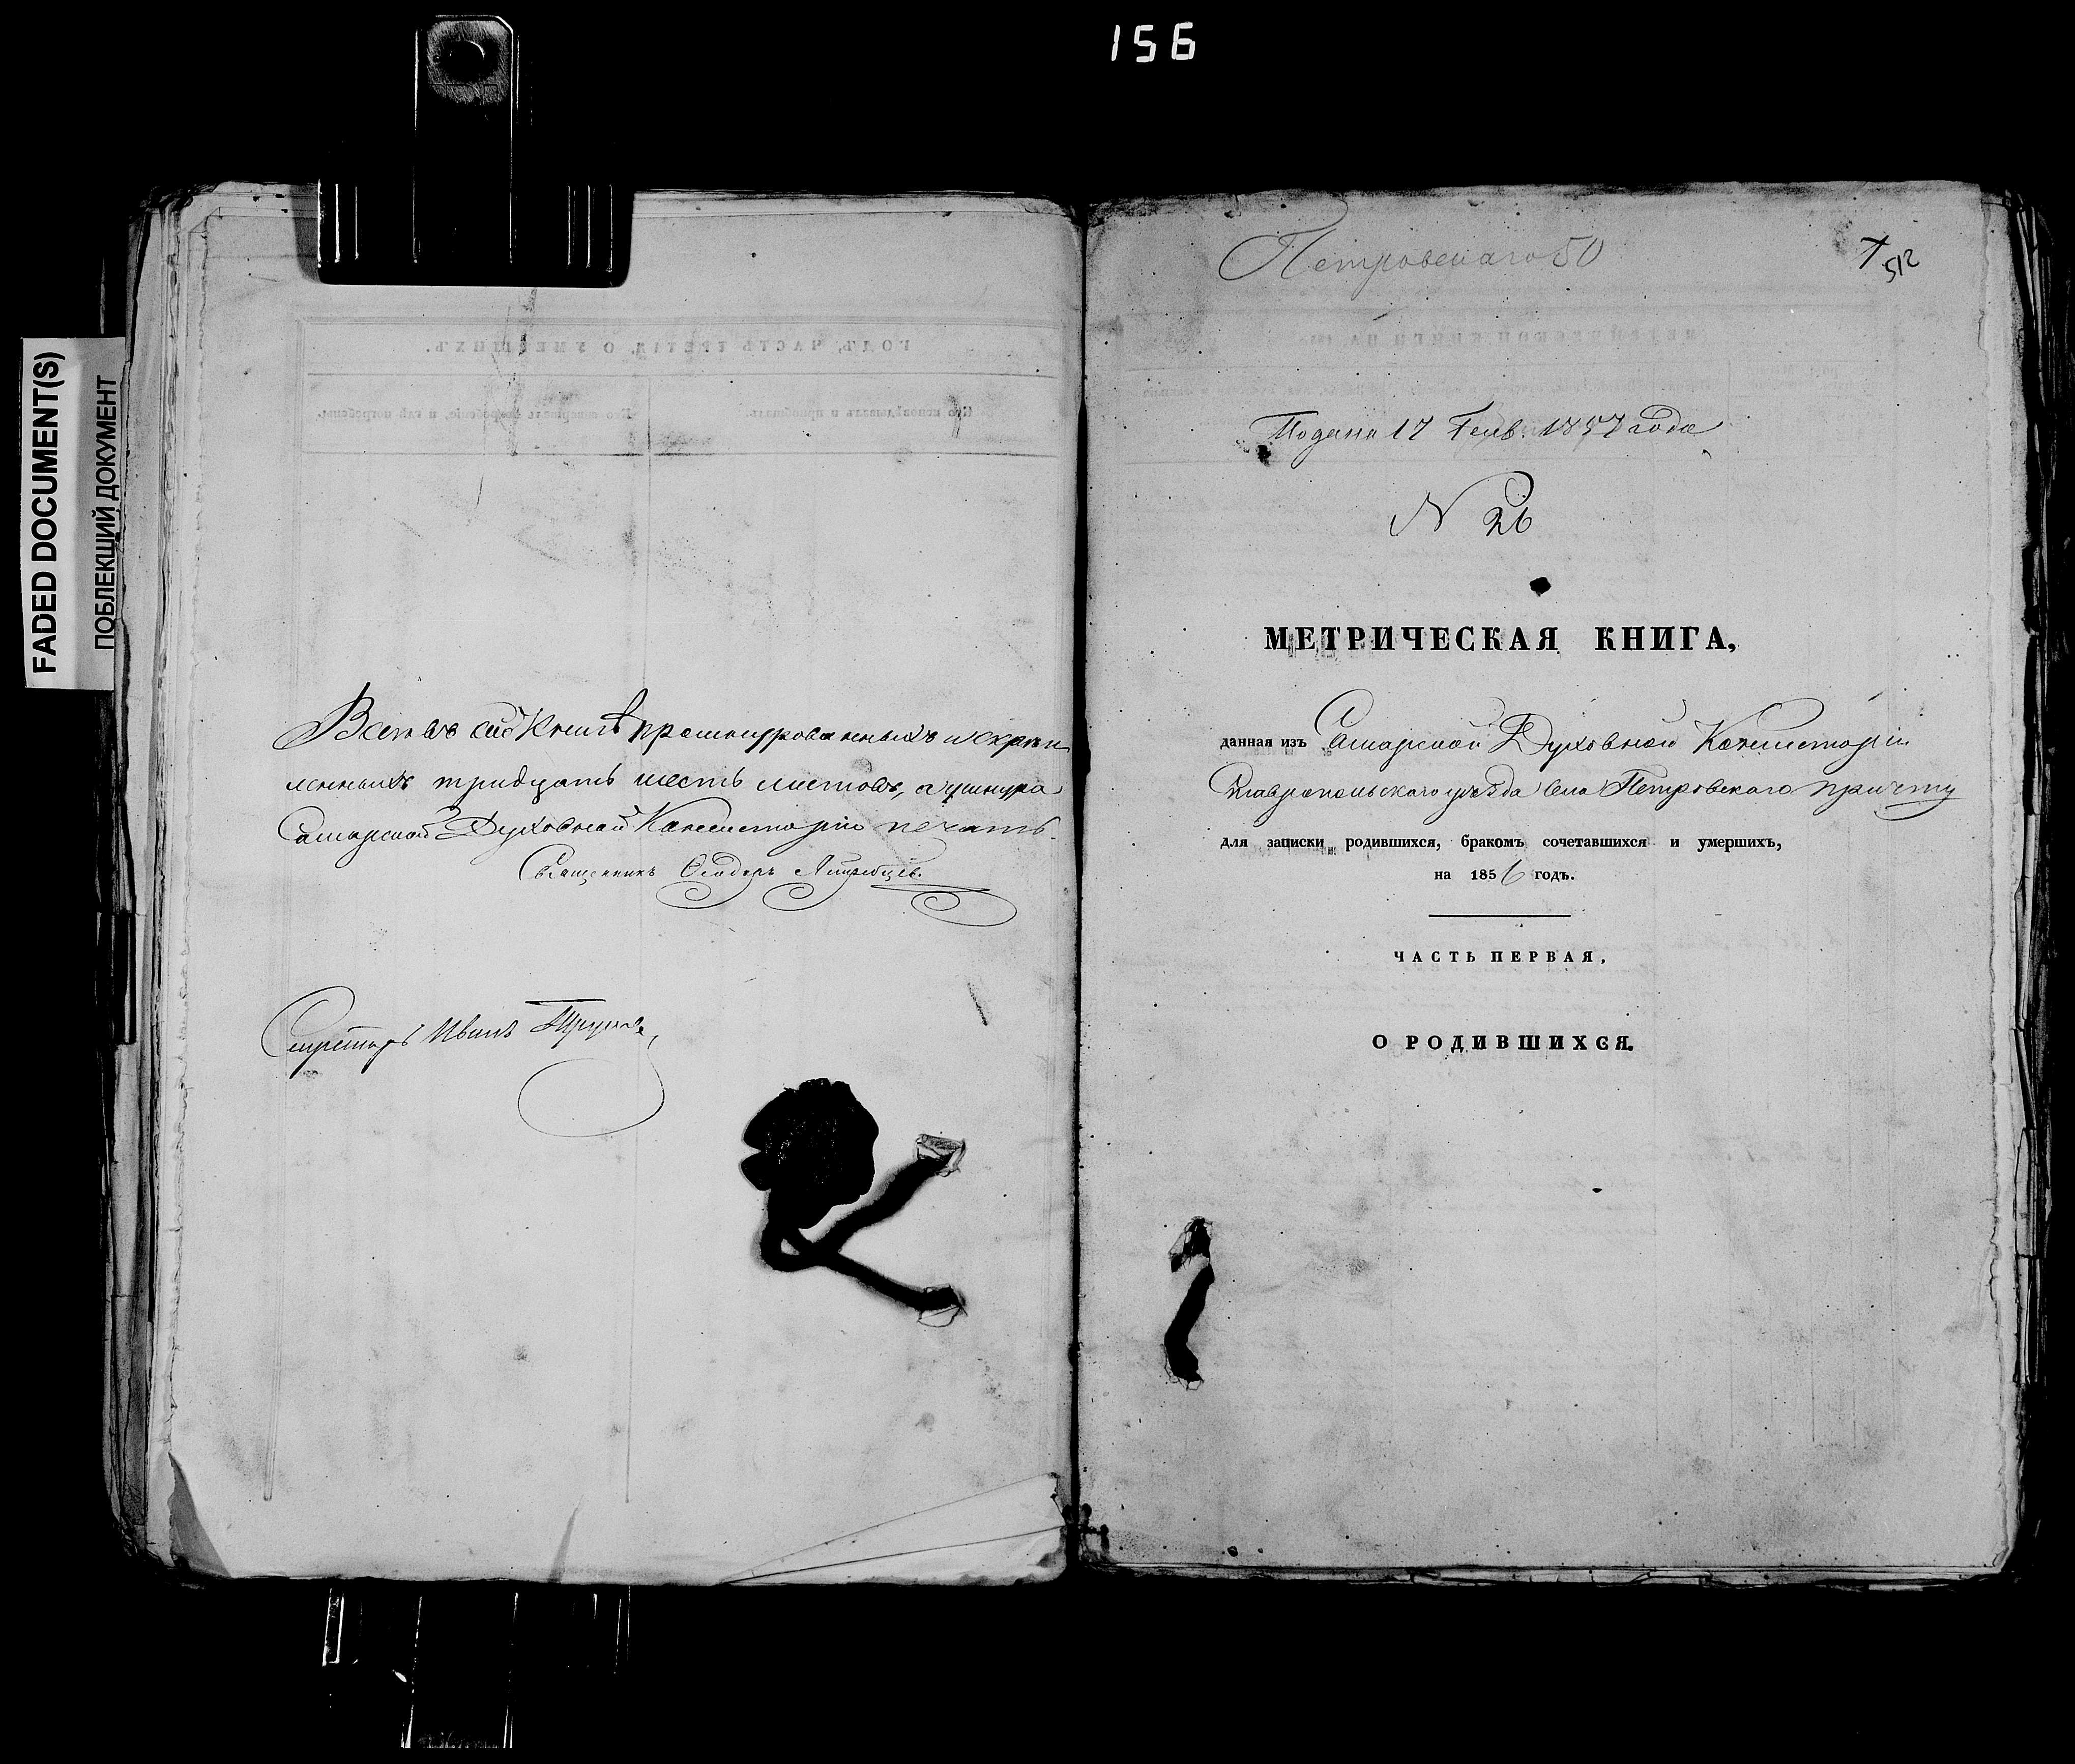 156
FADED DOCUMENT(S)
ПОБЛЕКЩИЙ ДОКУМЕНТ
ГОДЪ, ЧАСТЬ ТРЕТІЯ, О УМЕРШИХЪ.
Кто исповѣдывалъ и пріобщалъ.
Всего въ сей Книгѣ прошнурованныхъ и скрѣп
ленныхъ тридцать шесть листовъ, а у шнура
Самарской Духовной Консисторіи печать.
Священникъ Ѳеодоръ
Секретарь Иванъ
Петровскаго 50
512
Подана 17 Генв. 1857 года
N 26
МЕТРИЧЕСКАЯ КНИГА,
данная изъ Самарской Духовной Консисторіи
Ставропольскаго уѣзда села Петровскаго причту
для записки родившихся, бракомъ сочетавшихся и умершихъ,
на 1856 годъ.
ЧАСТЬ ПЕРВАЯ.
О РОДИВШИХСЯ.